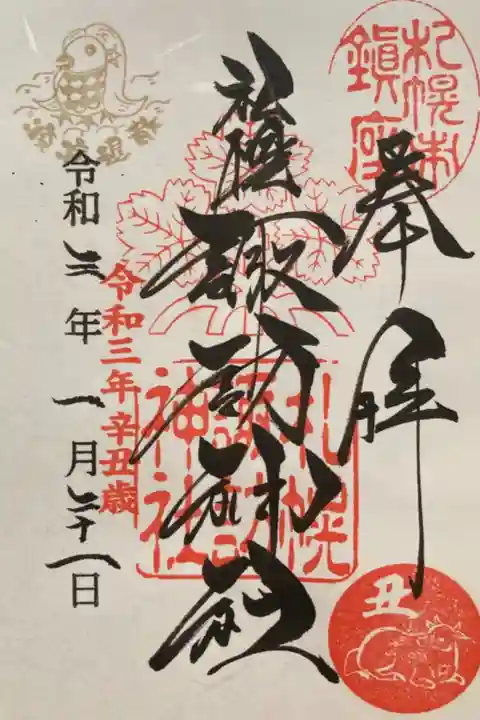 札幌市
鎮座
奉拝
札幌
諏訪神社
札幌
諏訪
神社
令和三年辛丑歳
令和三年一月二十一日
丑